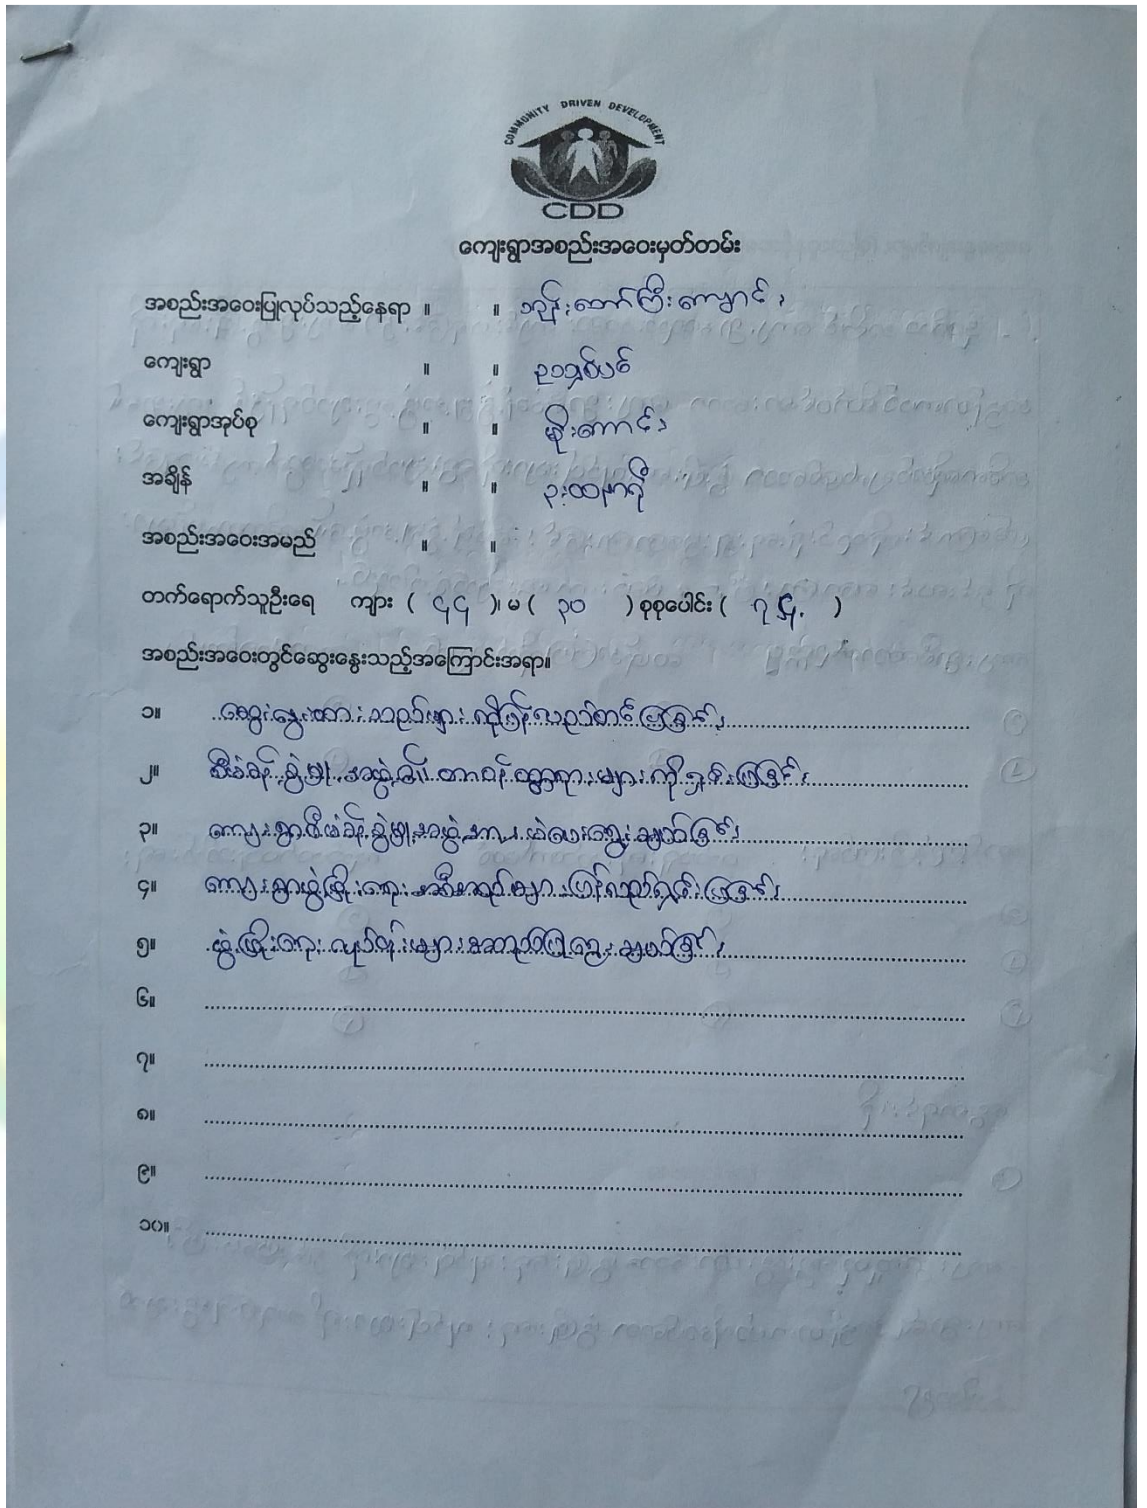 COMMUNITY DRIVEN DEVELOPMENT
CDD
ကျေးရွာအစည်းအဝေးမှတ်တမ်း
အစည်းအဝေးပြုလုပ်သည့်နေရာ ။ ။ ဘုန်းတော်ကြီးကျောင်း
ကျေးရွာ ။ ။ ဥသျှစ်ပင်
ကျေးရွာအုပ်စု ။ ။ မိုးကောင်း
အချိန် ။ ။ ၃းထနာရီ
အစည်းအဝေးအမည် ။ ။
တက်ရောက်သူဦးရေ ကျား ( ၄၄ )၊ မ ( ၃၀ ) စုစုပေါင်း ( ၇၄. )
အစည်းအဝေးတွင်ဆွေးနွေးသည့်အကြောင်းအရာ။
၁။ ဆွေးနွေးထားသည်များကိုပြန်လည်တင်ပြခြင်း
၂။ စီမံခန့်ခွဲမှုအဖွဲ့၏ တာဝန်ဝတ္တရားများကိုရှင်းပြခြင်း
၃။ ကျေးရွာစီမံခန့်ခွဲမှုအဖွဲ့အားမဲပေးရွေးချယ်ခြင်း
၄။ ကျေးရွာဖွံ့ဖြိုးရေးအစီအစဉ်များပြန်လည်ရှင်းပြခြင်း
၅။ ဖွံ့ဖြိုးရေးလုပ်ငန်းများဆောင်ရွက်ပြုရွေးချယ်ခြင်း
၆။
၇။
၈။
၉။
၁၀။